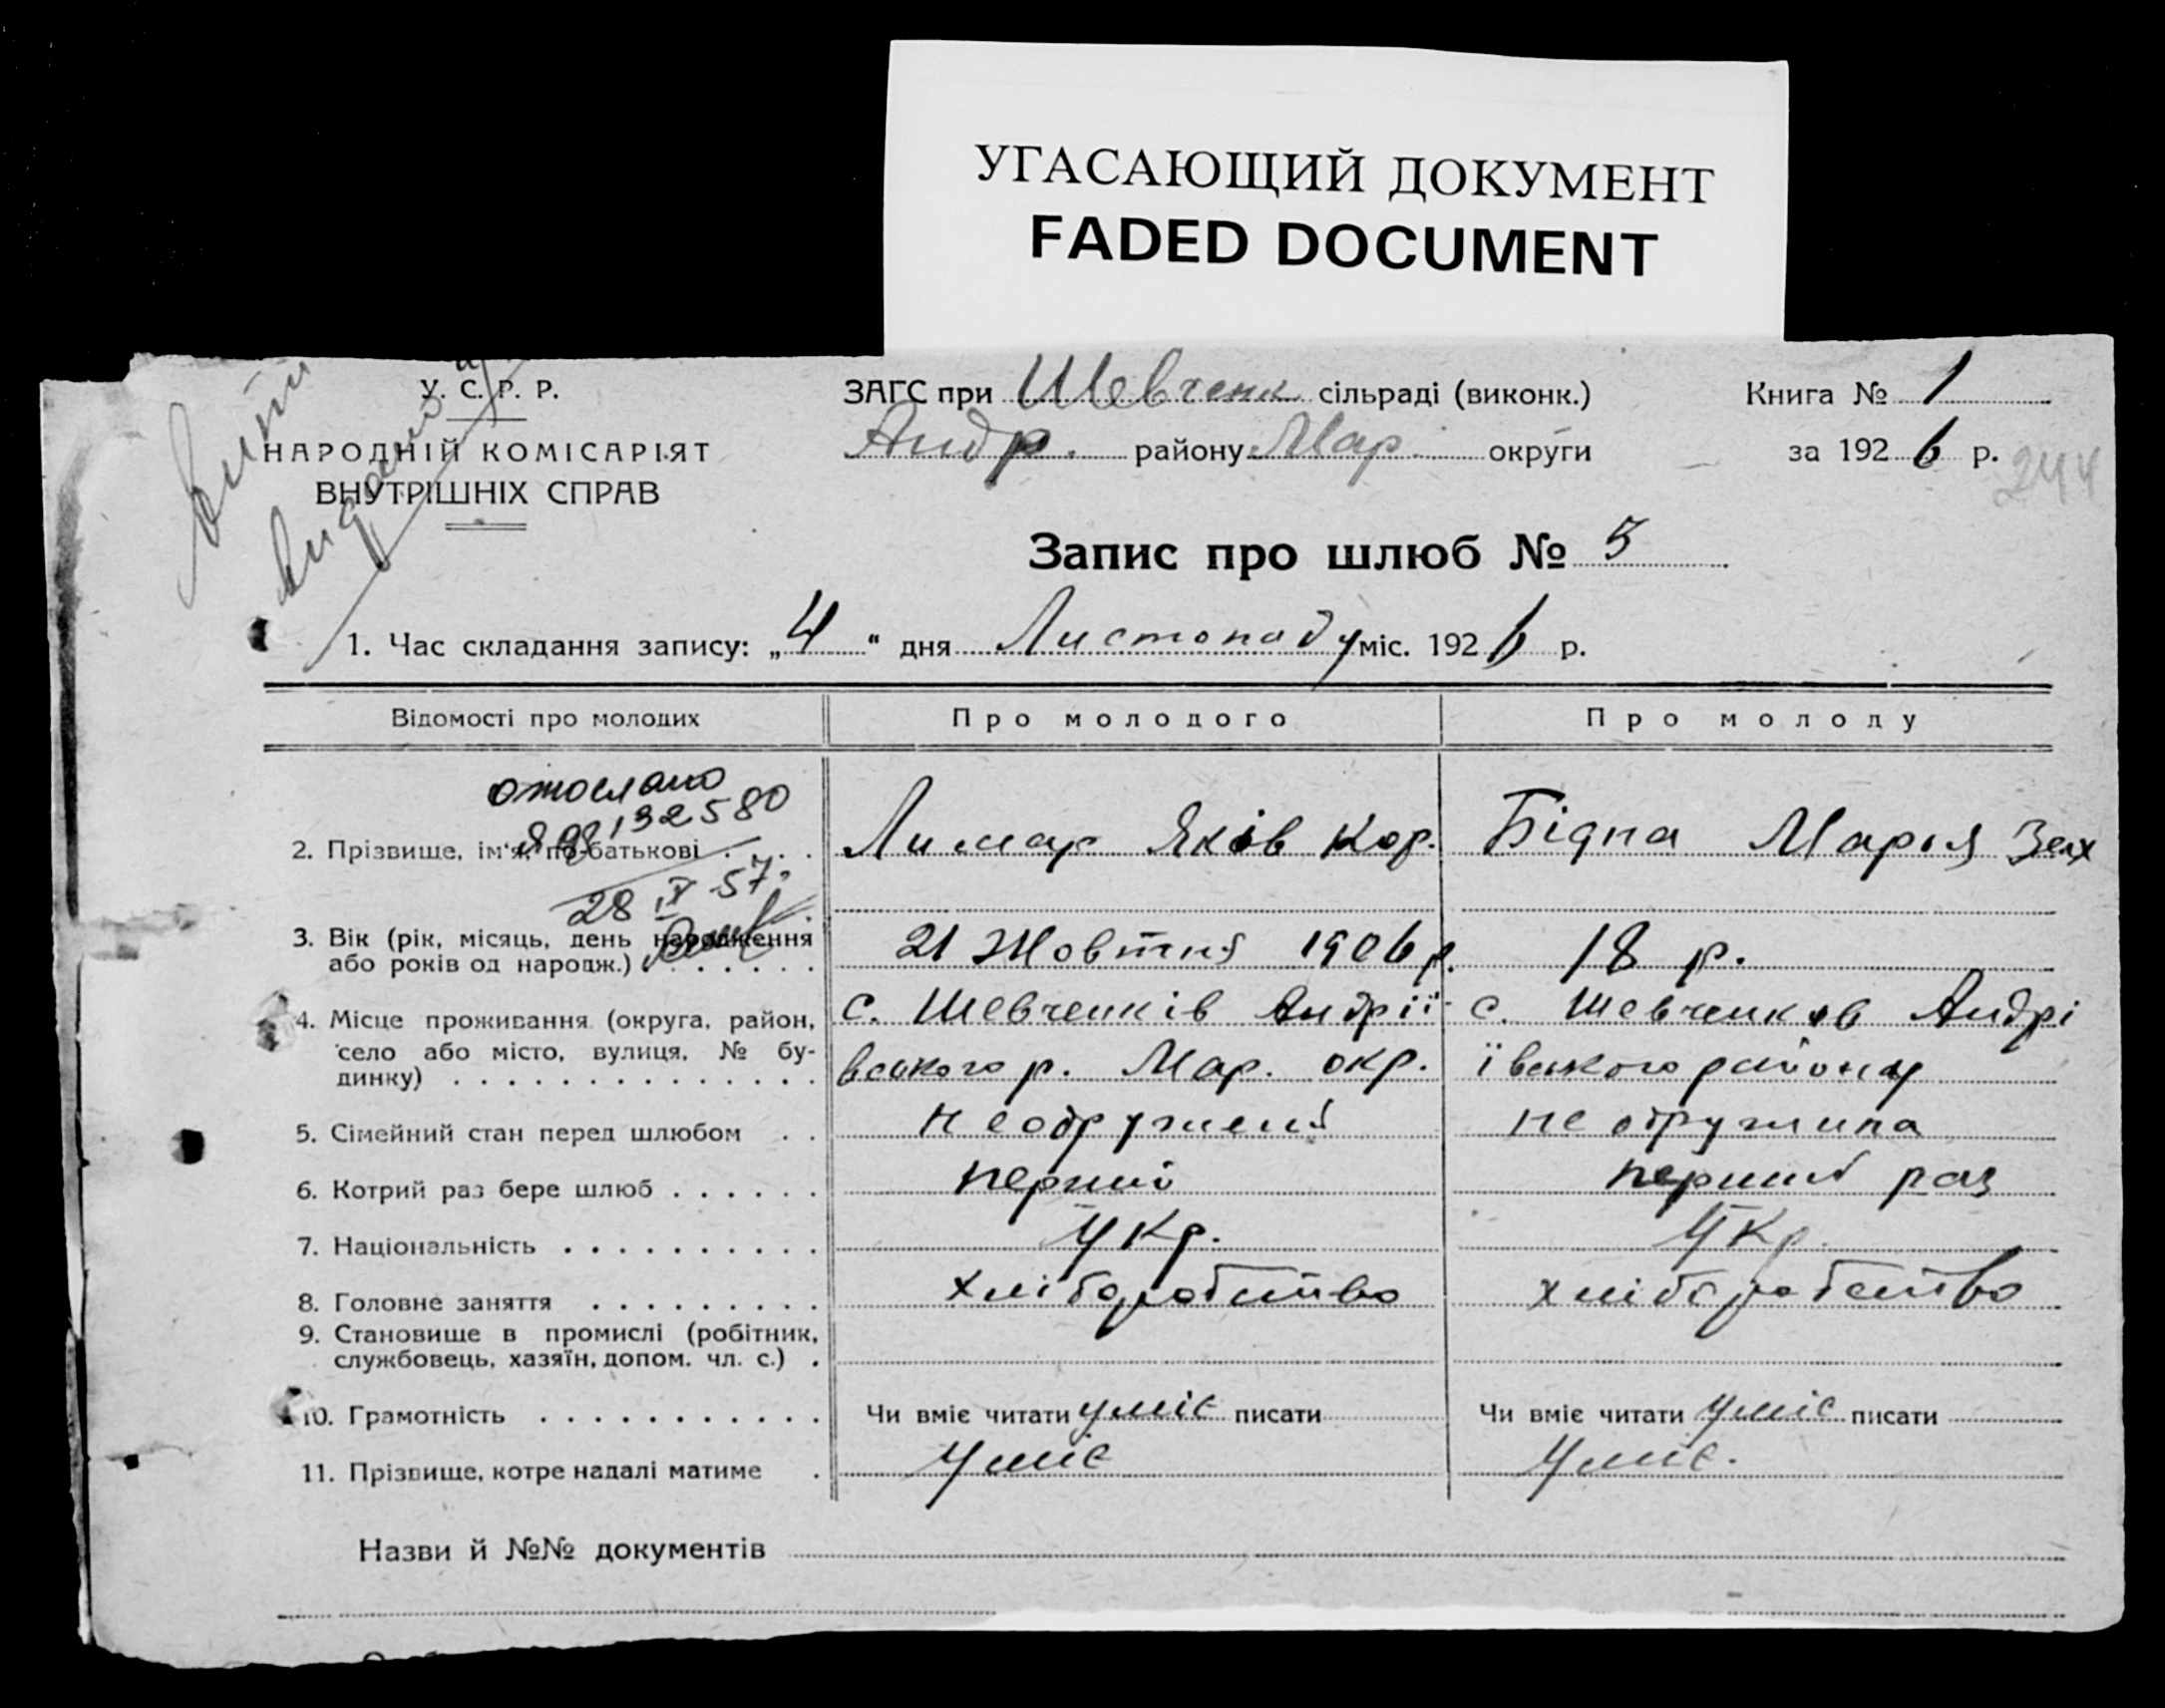 УГАСАЮЩИЙ ДОКУМЕНТ
FADED DOCUMENT
У. С. Р. Р.
НАРОДНІЙ КОМІСАРІЯТ
ВНУТРІШНІХ СПРАВ
ЗАГС при Шевченк сільраді (виконк.)
Андр. району Мар. округи
Книга № 1
за 1926 р.
244
Запис про шлюб № 5
1. Час складання запису: „4“ дня Листопаду міс. 1926 р.
Відомості про молодих
Про молодого
Про молоду
отослано
132580
28 IV 57
2. Прізвище, ім'я, по-батькові . . .
Лимар Яків Кор.
Бідна Марія Зах
3. Вік (рік, місяць, день народження
або років од народж.) . . . . . .
21 Жовтня 1906 р.
18 р.
4. Місце проживання (округа, район,
село або місто, вулиця, № бу-
динку) . . . . . . . . . . . . . .
с. Шевченків Андрії-
вського р. Мар. окр.
с. Шевченков Андрі
ївського району
5. Сімейний стан перед шлюбом . .
неодружений
не одружина
6. Котрий раз бере шлюб . . . . . .
перший
перший раз
7. Національність . . . . . . . . . .
Укр.
Укр.
8. Головне заняття . . . . . . . . .
хліборобство
хліборобство
9. Становище в промислі (робітник,
службовець, хазяїн, допом. чл. с.) .
10. Грамотність . . . . . . . . . . .
Чи вміє читати уміє писати
уміє
Чи вміє читати уміє писати
уміє.
11. Прізвище, котре надалі матиме .
Назви й №№ документів